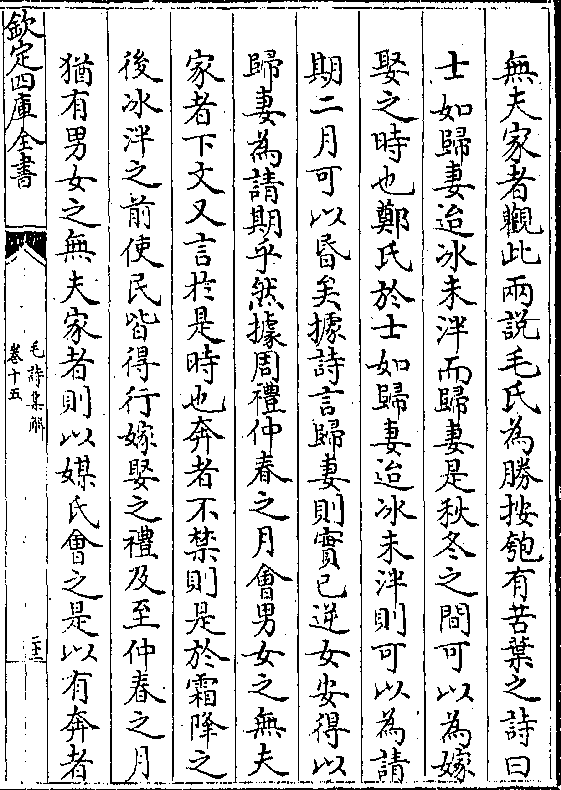 無夫家者觀此兩說毛氏為勝按匏有苦葉之詩曰
士如歸妻迨冰未泮而歸妻是秋冬之間可以為嫁
娶之時也鄭氏於士如歸妻迨冰未泮則可以為請
期二月可以昏矣據詩言歸妻則實已逆女安得以
歸妻為請期乎然據周禮仲春之月會男女之無夫
家者下文又言於是時也奔者不禁則是於霜降之
後冰泮之前使民皆得行嫁娶之禮及至仲春之月
猶有男女之無夫家者則以媒氏會之是以有奔者
欽定四庫全書
毛詩集解
卷十五
二十三